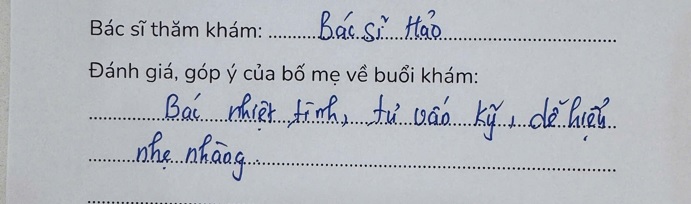 Bác sĩ thăm khám: Bác sĩ Hảo
Đánh giá, góp ý của bố mẹ về buổi khám:
Bác nhiệt tình, tư vấn kỹ, dễ hiểu
nhẹ nhàng.